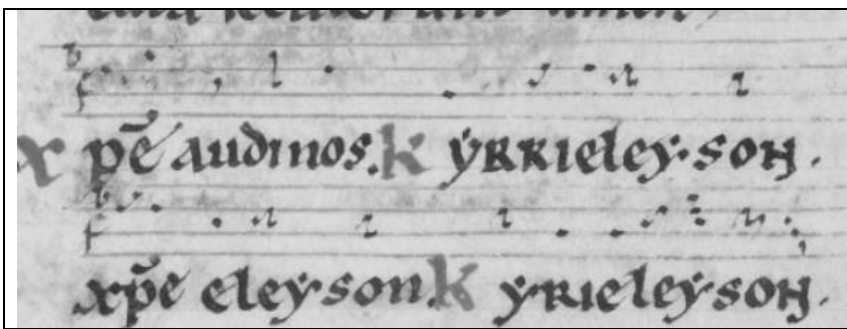 xp̄e audinos. k yrrieleyson.
xp̄e eleyson. k yrieleyson.